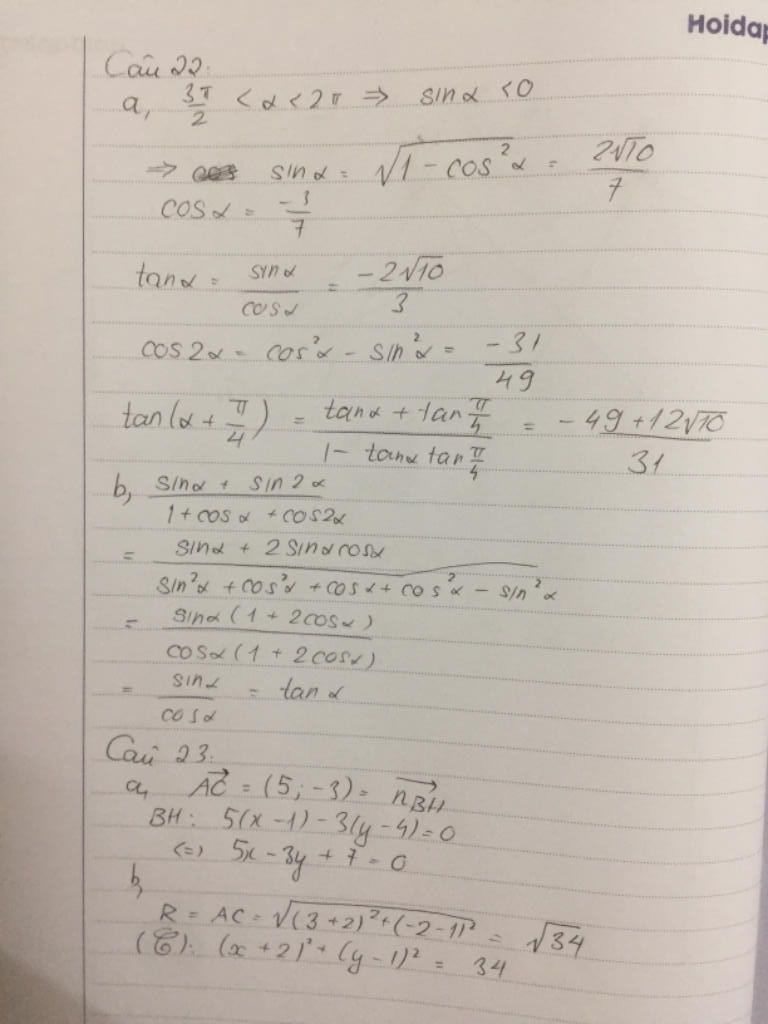 Hoidap
Câu 22:
a, 3π/2 < α < 2π ⇒ sinα < 0
⇒ sinα = √(1 - cos²α) = 2√10/7
cosα = -3/7
tanα = sinα/cosα = -2√10/3
cos2α = cos²α - sin²α = -31/49
tan(α + π/4) = (tanα + tan π/4)/(1 - tanα tan π/4) = (-49 + 12√10)/31
b, (sinα + sin2α)/(1 + cosα + cos2α)
= (sinα + 2sinαcosα)/(sin²α + cos²α + cosα + cos²α - sin²α)
= sinα(1 + 2cosα)/cosα(1 + 2cosα)
= sinα/cosα = tanα
Câu 23:
a, AC→ = (5; -3) = n→BH
BH: 5(x - 1) - 3(y - 4) = 0
(=) 5x - 3y + 7 = 0
b,
R = AC = √((3 + 2)² + (-2 - 1)²) = √34
(C): (x + 2)² + (y - 1)² = 34